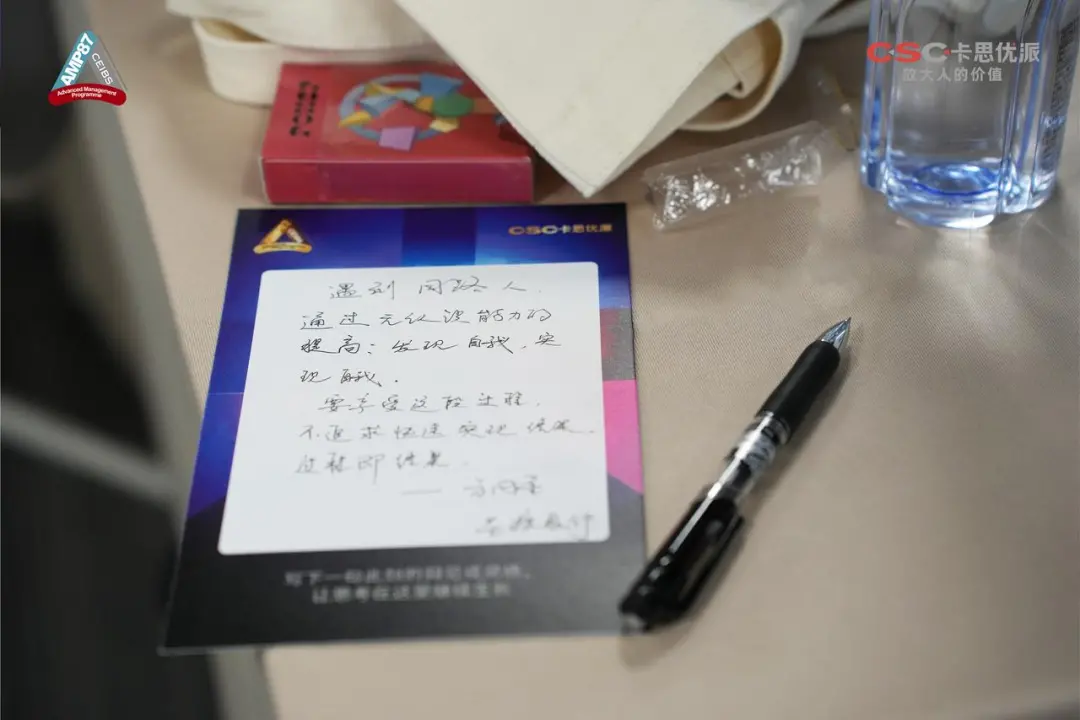 AMP87
CEIBS
Advanced Management
Programme
CSC卡思优派
放大人的价值
CSC卡思优派
遇到同路人.
通过元认识能力的
提高：发现自我，实
现自我.
要享受这段过程.
不追求快速实现结果.
过程即结果.
写下一句此刻的
让思考在这里继续生长